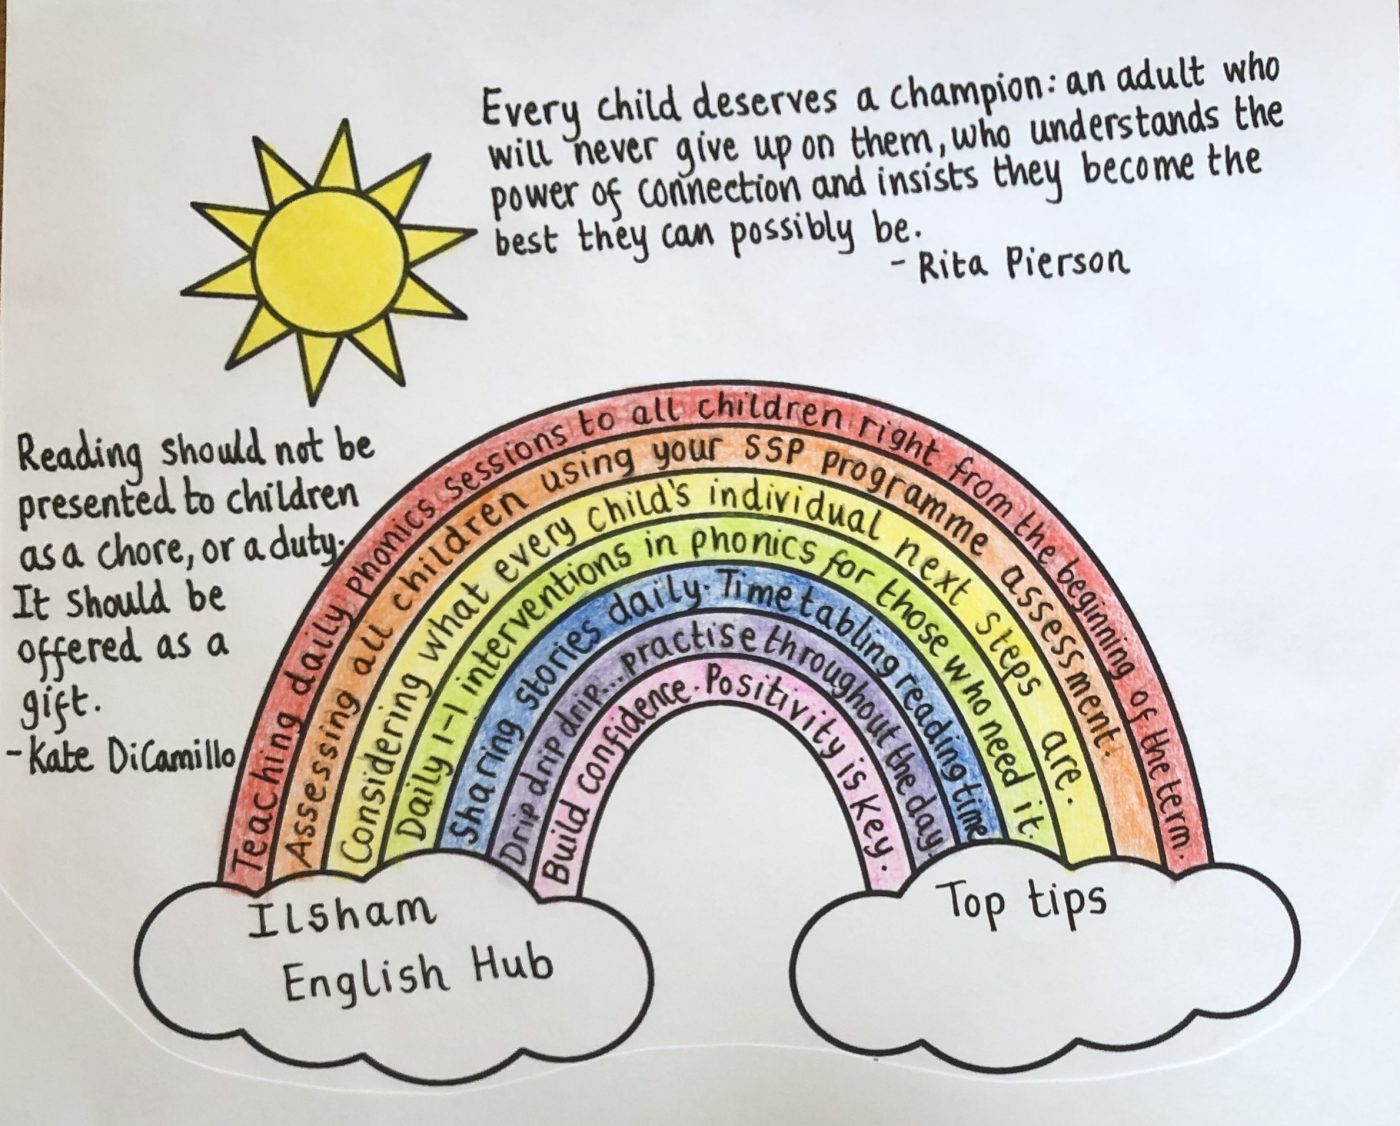 Every child deserves a champion: an adult who
will never give up on them, who understands the
power of connection and insists they become the
best they can possibly be.
- Rita Pierson
Reading should not be
presented to children
as a chore, or a duty.
It should be
offered as a
gift.
- Kate DiCamillo
Teaching daily phonics sessions to all children right from the beginning of the term.
Assessing all children using your SSP programme assessment.
Considering what every child's individual next steps are.
Daily 1-1 interventions in phonics for those who need it.
Sharing stories daily. Timetabling reading time
Drip drip drip... practise throughout the day.
Build confidence. Positivity is key.
Ilsham
English Hub
Top tips